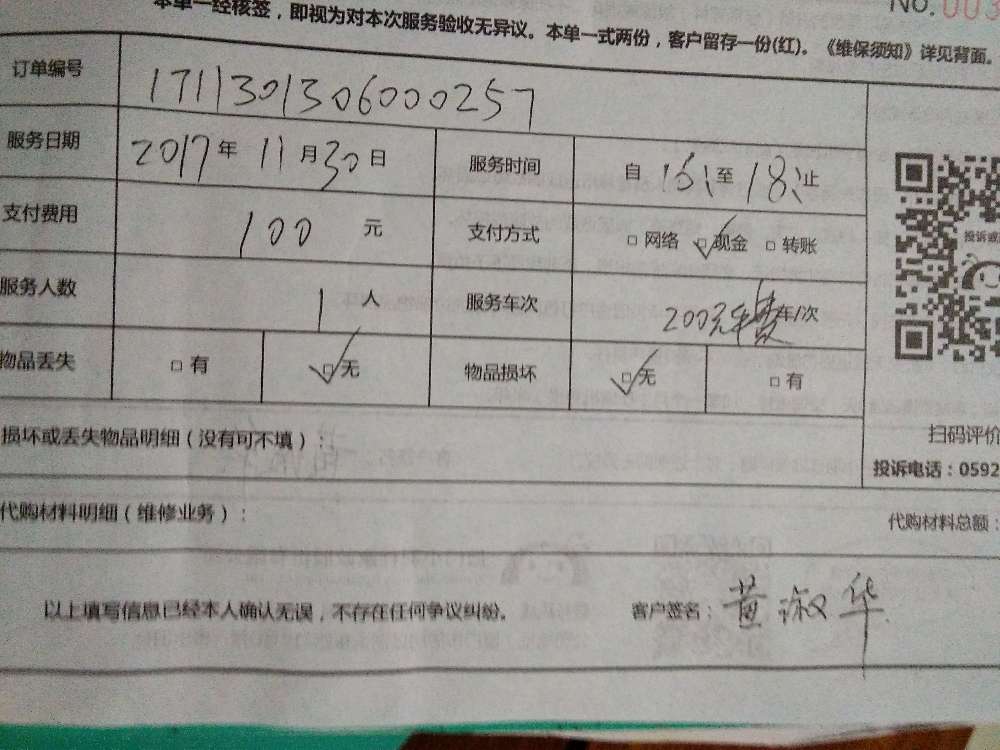 NO.003
本单一经核签，即视为对本次服务验收无异议。本单一式两份，客户留存一份(红)。《维保须知》详见背面。
订单编号 1711301306000257
服务日期 2017年 11月30日 服务时间 自 16: 至 18: 止
支付费用 100 元 支付方式 □ 网络 □ 现金 □ 转账
服务人数 1 人 服务车次 200元车费 车/次
物品丢失 □ 有 □ 无 物品损坏 □ 无 □ 有
投诉或
损坏或丢失物品明细（没有可不填）：
扫码评价
投诉电话：0592
代购材料明细（维修业务）：
代购材料总额：
以上填写信息已经本人确认无误，不存在任何争议纠纷。 客户签名：黄淑华